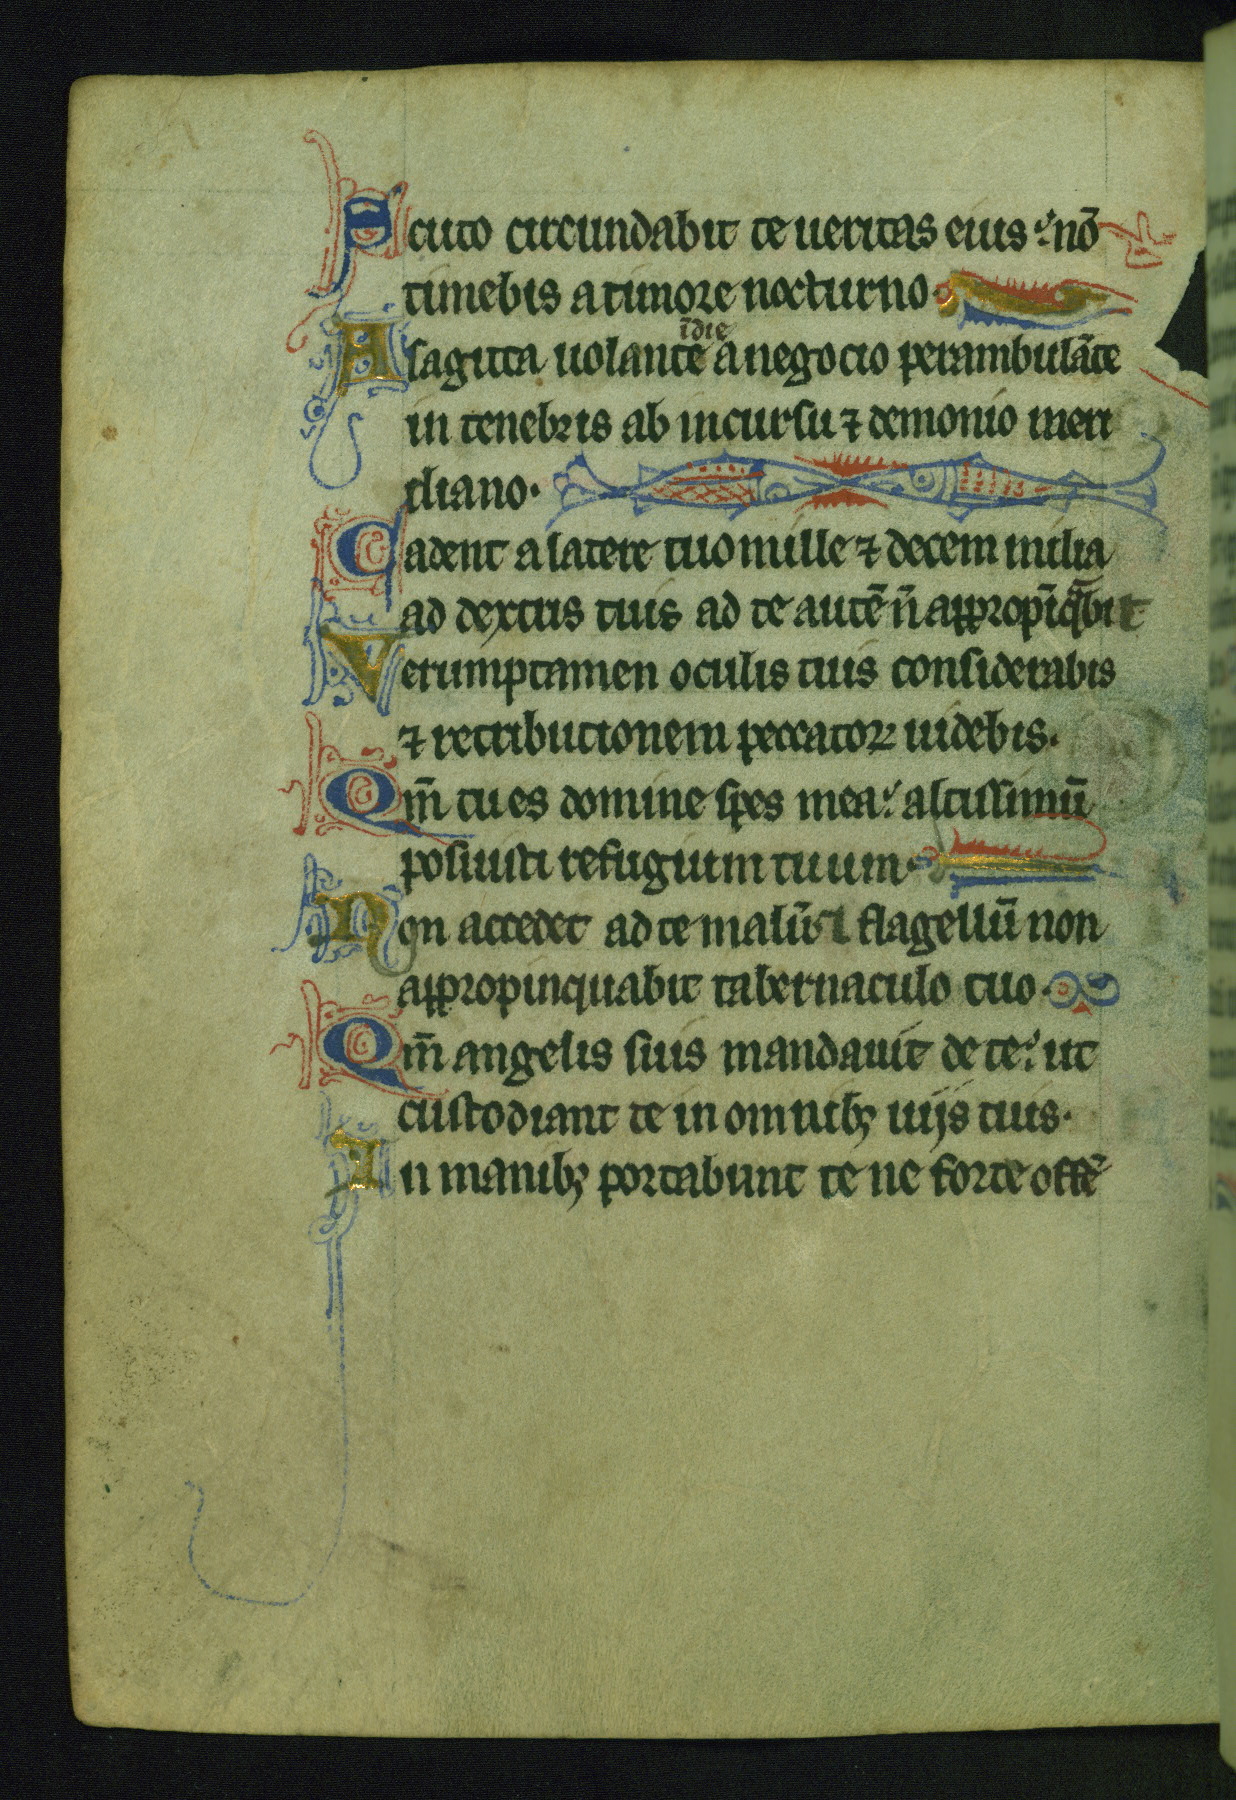 Scuto circundabit te ueritas eius: nō
timebis a timore nocturno.
īdie
A sagitta uolante a negocio perambulāte
in tenebris ab incursu ⁊ demonio meri
diano.
Cadent a latere tuo mille ⁊ decem milia
ad dextris tuis ad te autē n̄ appropīq̄bit
Verumptamen oculis tuis considerabis
⁊ retributionem peccatoꝝ uidebis.
Qm̄ tu es domine spes mea: altissimū
posuisti refugium tuum.
Non accedet ad te malū: ⁊ flagellū non
appropinquabit tabernaculo tuo.
Qm̄ angelis suis mandauit de te: ut
custodiant te in omnibꝫ uijs tuis.
In manibꝫ portabunt te ne forte offē